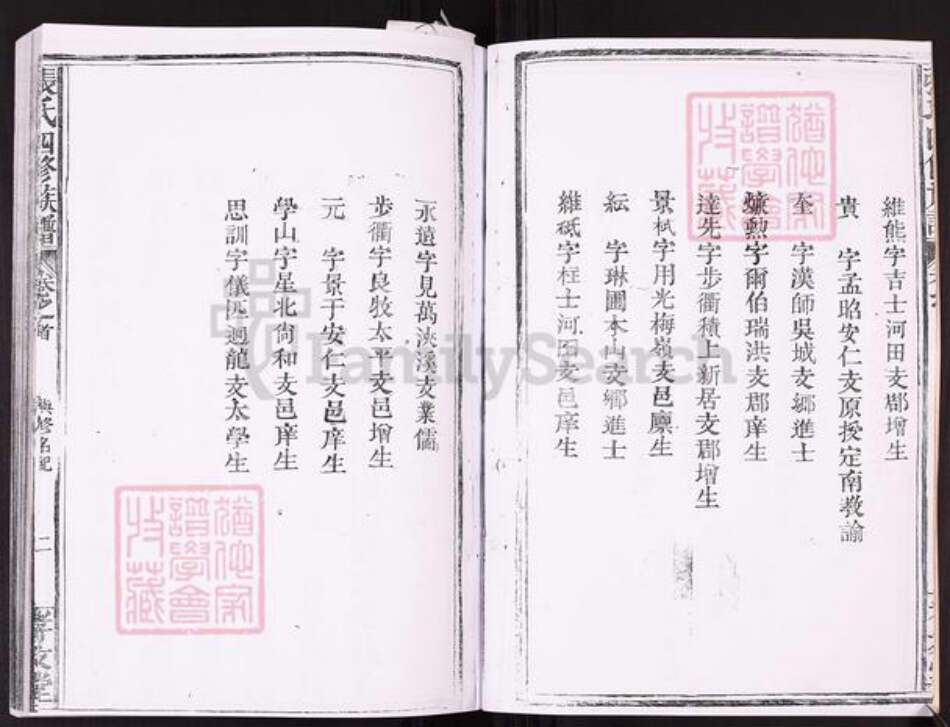 維熊字吉士河田支郡增生
貴 字孟昭安仁支原授定南教諭
奎 字漢師吳城支鄉進士
勳字爾伯瑞洪支郡庠生
達先字步衢積上新居支郡增生
景栻字用光梅嶺支邑廩生
紜 字琳圃本山支鄉進士
維砥字柱士河田支邑庠生
永遠字見萬浹溪支業儒
步衢字良牧太平支邑增生
元 字景于安仁支邑庠生
學山字星北尙和支邑庠生
思訓字儀匹迥龍支太學生
張氏四修族譜
卷之首
與修名紀
二
孝友堂
猶他家譜學會收藏
猶他家譜學會收藏
FamilySearch